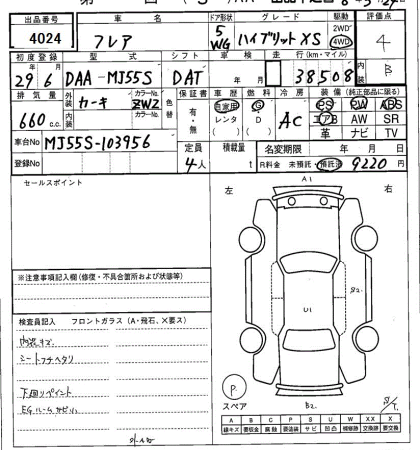 出品番号 車名 ドア形状 グレード 駆動 評価点
4024 フレア 5 WG ハイブリットXS 2WD 4WD 4
初度登録 型式 シフト 車検 走行(km・マイル) 内装 B
29年 6月 DAA-MJ55S DAT 年 月 38508
排気量 外装 カラーNo. 色替 保証書 車歴 燃料 冷房 装備 (純正部品に限る)
660 c.c. カーキ ZWZ 有・無 自家用 レンタ G D AC PS PW ABS
内装 カラーNo. エアB AW SR
革 ナビ TV
車台No MJ55S-103956 定員 積載量 名変期限 年 月 日
登録No 4人 t R料金 未預託 預託済 9220 円
セールスポイント
左 A1 右
※注意事項記入欄(修復・不具合箇所および状態等)
B2
U1
検査員記入 フロントガラス(A・飛石、X要ス)
内装キズ
シートフチヘタリ
下回りペイント
EGルームサビ
P
スペア
B2
A B C P S U W X XX
線キズ 要板金 腐蝕 要塗装 サビ 凹凸 補修跡 交換跡 要交換